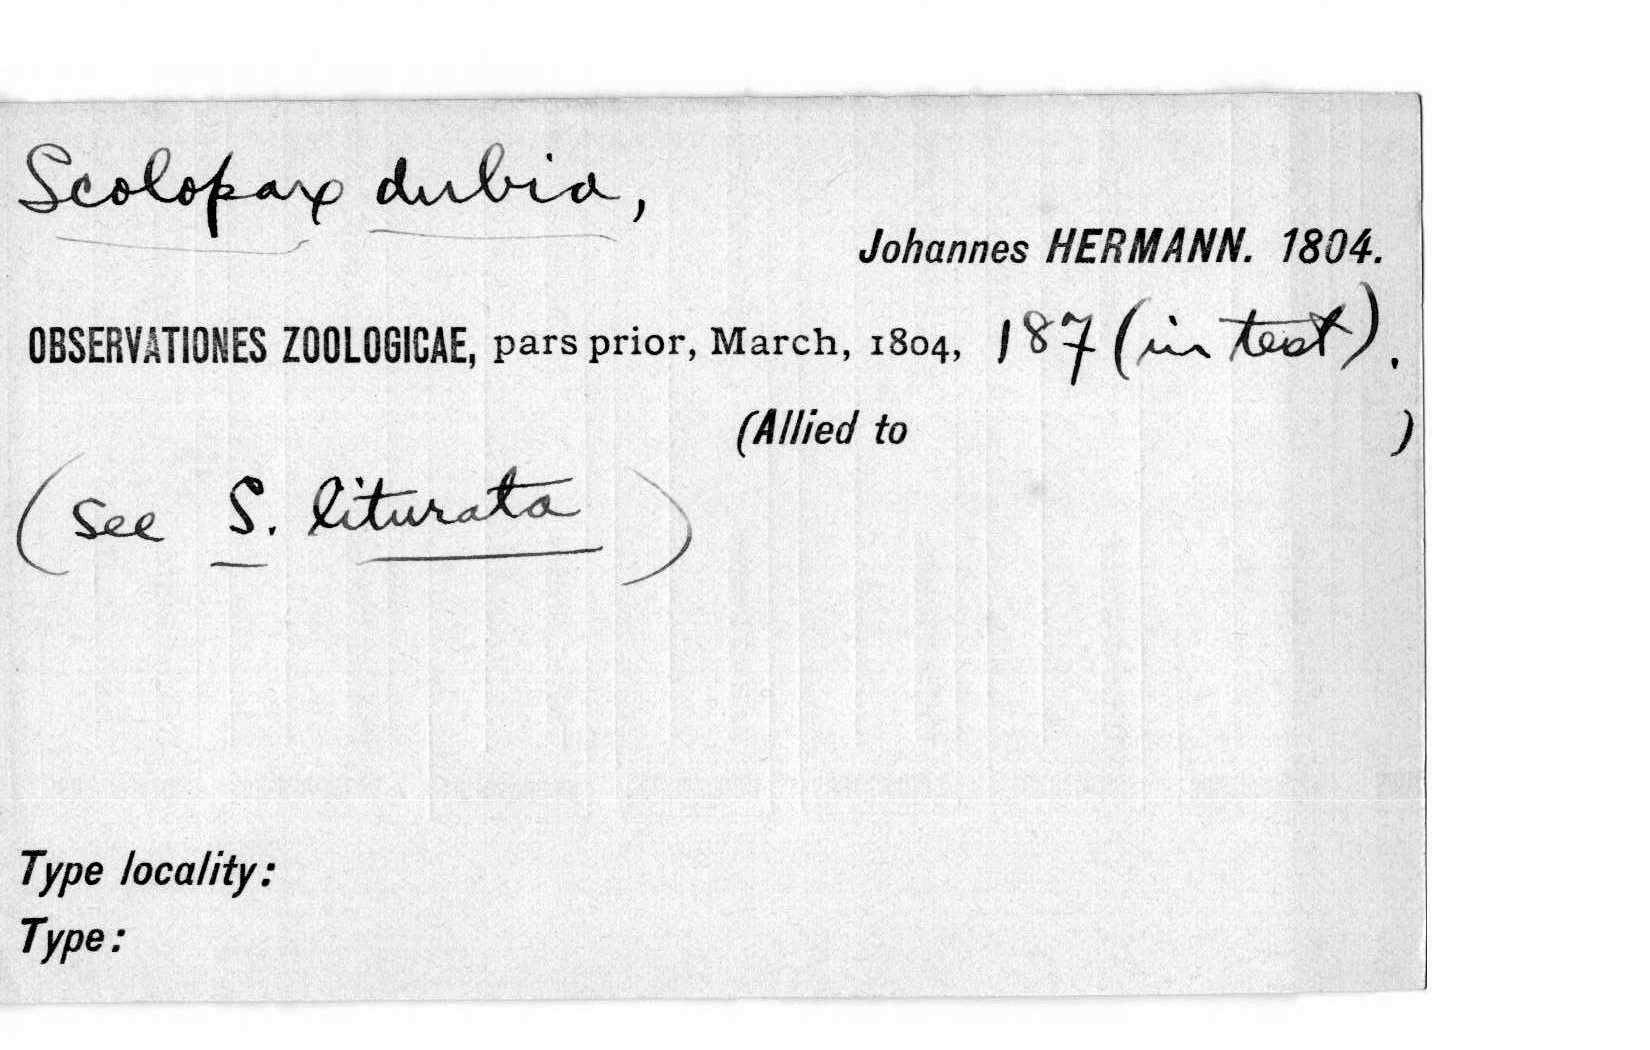 Scolopax dubia,
Johannes HERMANN. 1804.
OBSERVATIONES ZOOLOGICAE, pars prior, March, 1804, 187 (in text).
(Allied to )
(see S. liturata)
Type locality:
Type: